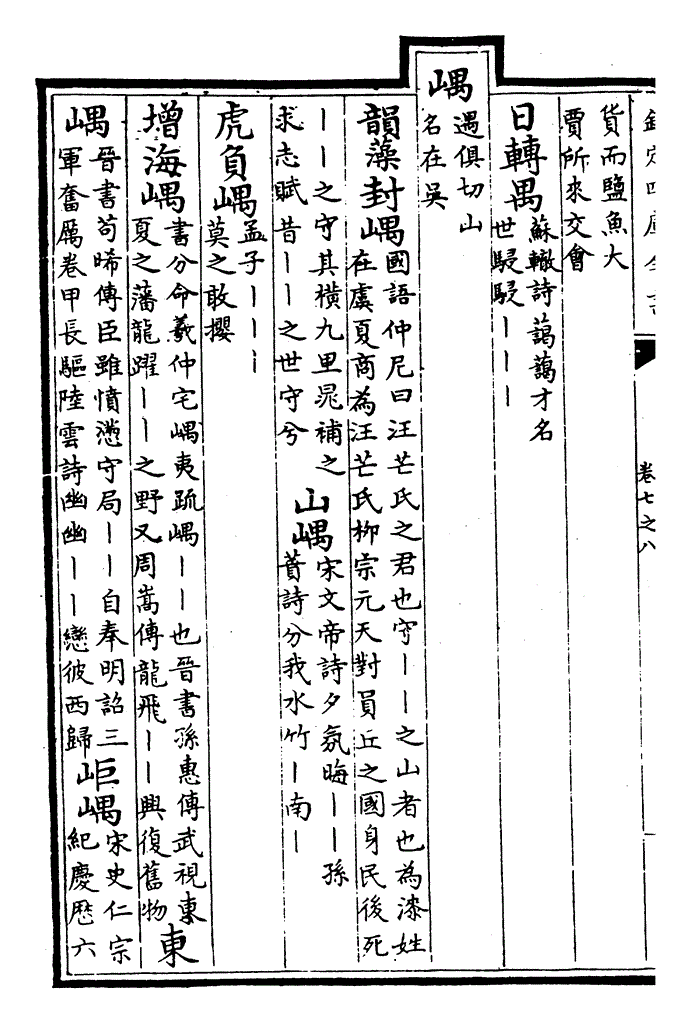 欽定四庫全書
卷七之八
貨而鹽魚大
賈所來交會
日轉禺 蘇轍詩藹藹才名
世駸駸丨丨丨
嵎 遇俱切山
名在吳
韻藻封嵎 國語仲尼曰汪芒氏之君也守丨丨之山者也為漆姓
在虞夏商為汪芒氏柳宗元天對員丘之國身民後死
丨丨之守其橫九里晁補之
求志賦昔丨丨之世守兮
山嵎 宋文帝詩夕氛晦丨丨孫
蕡詩分我水竹丨南丨
虎負嵎 孟子丨丨丨
莫之敢攖
增海嵎 書分命羲仲宅嵎夷疏嵎丨丨也晉書孫惠傳武視東
夏之藩龍躍丨丨之野又周嵩傳龍飛丨丨興復舊物
東
嵎 晉書苟晞傳臣雖憤懣守局丨丨自奉明詔三
軍奮厲卷甲長驅陸雲詩幽幽丨丨戀彼西歸
岠嵎 宋史仁宗
紀慶厯六